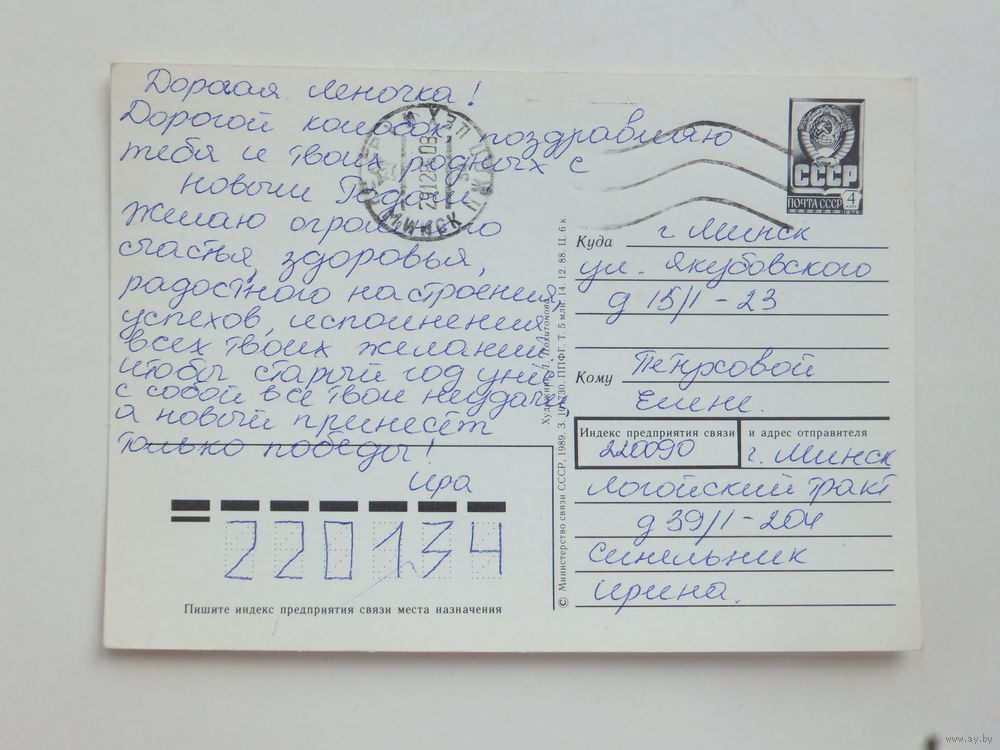 Дорогая Леночка!
Дорогой колобок, поздравляю
тебя и твоих родных с
Новым Годом.
Желаю огромного
счастья, здоровья,
радостного настроения,
успехов, исполнения
всех твоих желаний
чтобы старый год унёс
с собой все твои неудачи
а новый принесёт
только победы!
Ира
220134
Пишите индекс предприятия связи места назначения
МИНСК
СССР
ПОЧТА СССР
4
КОП
1976
Куда г Минск
ул. Якубовского
д 15/1 - 23
Кому
Елене.
Индекс предприятия связи и адрес отправителя
220090 г. Минск
Логойский тракт
д 39/1 - 204
Синельник
Ирина.
© Министерство связи СССР, 1989. З. ППФГ. Т. 5 млн. 14. 12. 88. Ц. 6 к.
Художник Л. Похитонова
www.ay.by